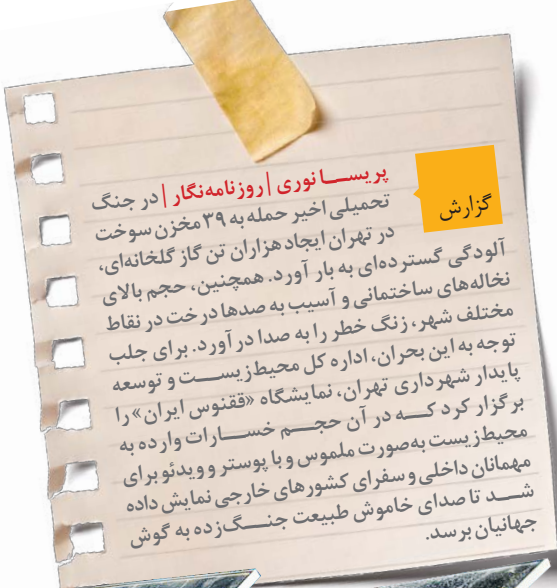 گزارش
پریســـا نوری | روزنامه‌نگار | در جنگ
تحمیلی اخیر حمله به ۳۹ مخزن سوخت
در تهران ایجاد هزاران تن گاز گلخانه‌ای،
آلودگی گسترده‌ای به بار آورد. همچنین، حجم بالای
نخاله‌های ساختمانی و آسیب به صدها درخت در نقاط
مختلف شهر، زنگ خطر را به صدا در آورد. برای جلب
توجه به این بحران، اداره کل محیط‌زیســـت و توسعه
پایدار شهرداری تهران، نمایشگاه «ققنوس ایران» را
برگزار کرد کـــه در آن حجـــم خســـارات وارده به
محیط‌زیست به‌صورت ملموس و با پوستر و ویدئو برای
مهمانان داخلی و سفرای کشورهای خارجی نمایش داده
شـــد تا صدای خاموش طبیعت جنـــگ‌زده به گوش
جهانیان برسد.